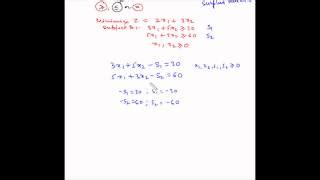 Minimise Z = 2x1 + 3x2
Subject to: 3x1 + 5x2 ≥ 30 S1
5x1 + 3x2 ≥ 60 S2
x1, x2 ≥ 0
3x1 + 5x2 - S1 = 30 x1, x2, S1, S2 ≥ 0
5x1 + 3x2 - S2 = 60
-S1 = 30 ; S1 = -30
-S2 = 60 ; S2 = -60